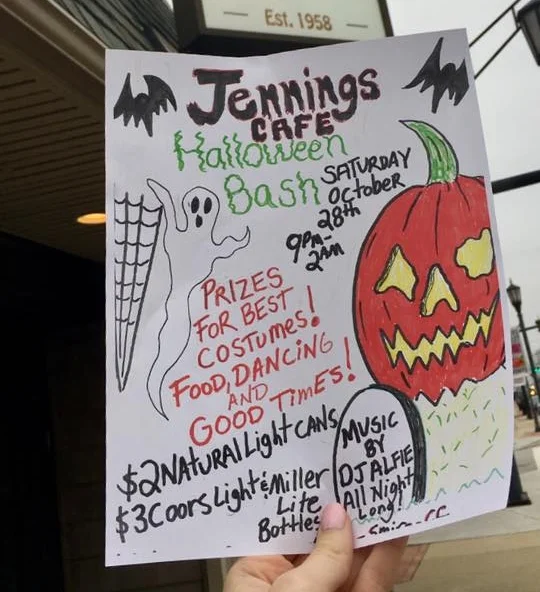 Est. 1958
Jennings
CAFE
Halloween
Bash
SATURDAY
October
28th
9pm-
2AM
PRIZES
FOR BEST
COSTUMES!
FOOD, DANCING
AND
GOOD TIMES!
$2 NATURAL Light CANS
$3 Coors Light & Miller
Lite
Bottles
MUSIC
BY
DJ ALFIE
All Night
Long!